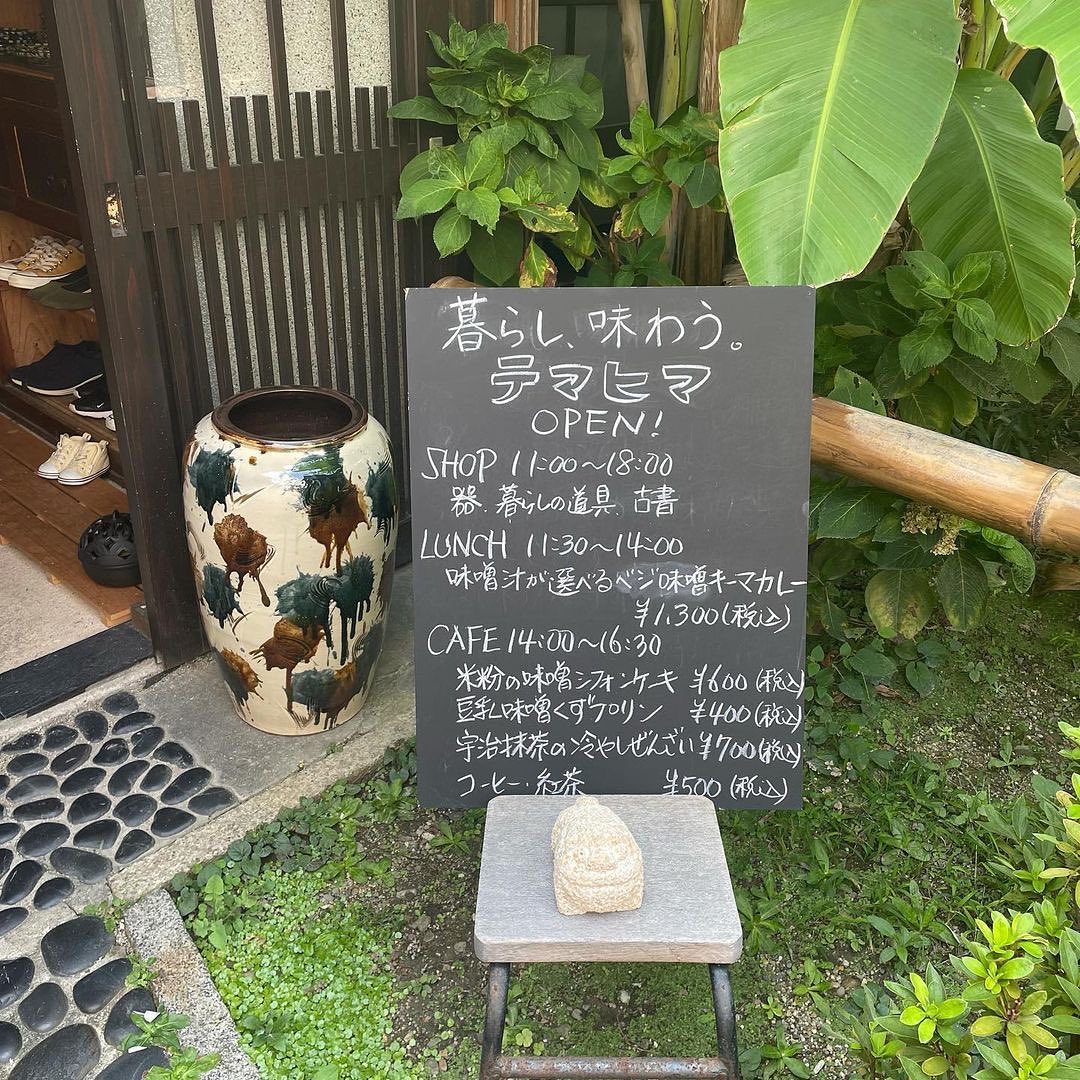 暮らし、味わう。
テマヒマ
OPEN!
SHOP 11:00〜18:00
器、暮らしの道具、古書
LUNCH 11:30〜14:00
味噌汁が選べるベジ味噌キーマカレー
¥1,300(税込)
CAFE 14:00〜16:30
米粉の味噌シフォンケーキ ¥600(税込)
豆乳味噌くずプリン ¥400(税込)
宇治抹茶の冷やしぜんざい ¥700(税込)
コーヒー・紅茶 ¥500(税込)